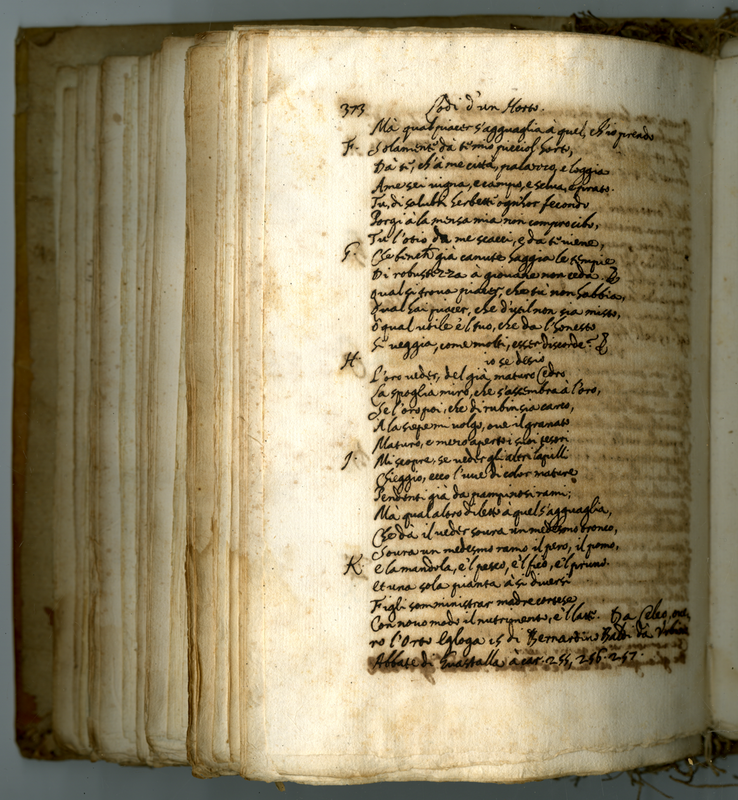 373 Lodi d'un Horto.
Mà qual piacer s'agguaglia à quel, ch'io prendo
F. Solamente da te mio picciol horto,
Da te, ch'à me città, palazzo, e loggia
A me sei vigna, e campo, e selva, e prato.
Tu, di salubri herbette ogn'hor fecondo
Porgi à la mensa mia non compro cibo,
Tu l'otio da me scacci, e da te viene,
G. Che bench' già canute haggia le tempie
Di robustezza a giovane non ceda.
Qual si trova piacer, che tu non habbia,
Qual hai piacer, che d'util non sia misto,
O qual utile è'l tuo, che da l'honesto
Si veggia, come molti, esser discorde?
H. io se desio
L'oro veder, del già maturo Cedro
La spoglia miro, che s'assembra à l'oro,
Se l'oro poi, che di rubin sia carco,
A la siepe mi volgo, ove il granato
Maturo, e mezo aperto i suoi tesori
J. Mi scopre, se veder gli altri lapilli
Cheggio, ecco l'uve di color mature
Pendenti già da pampinosi rami;
Mà qual altro diletto à quel s'agguaglia,
Che dà il veder soura un medesmo tronco,
Soura un medesmo ramo il pero, il pomo,
K. e la mandola, e'l pesco, e'l fico, e'l pruno.
et una sola pianta à si diversi
Figli somministrar madre cortese
Con novo modo il nutrimento, e'l latte. Da Celeo, ove-
ro l'Orto Egloga is di Bernardino Baldi da Urbino
Abbate di Guastalla à car. 255, 256. 257.